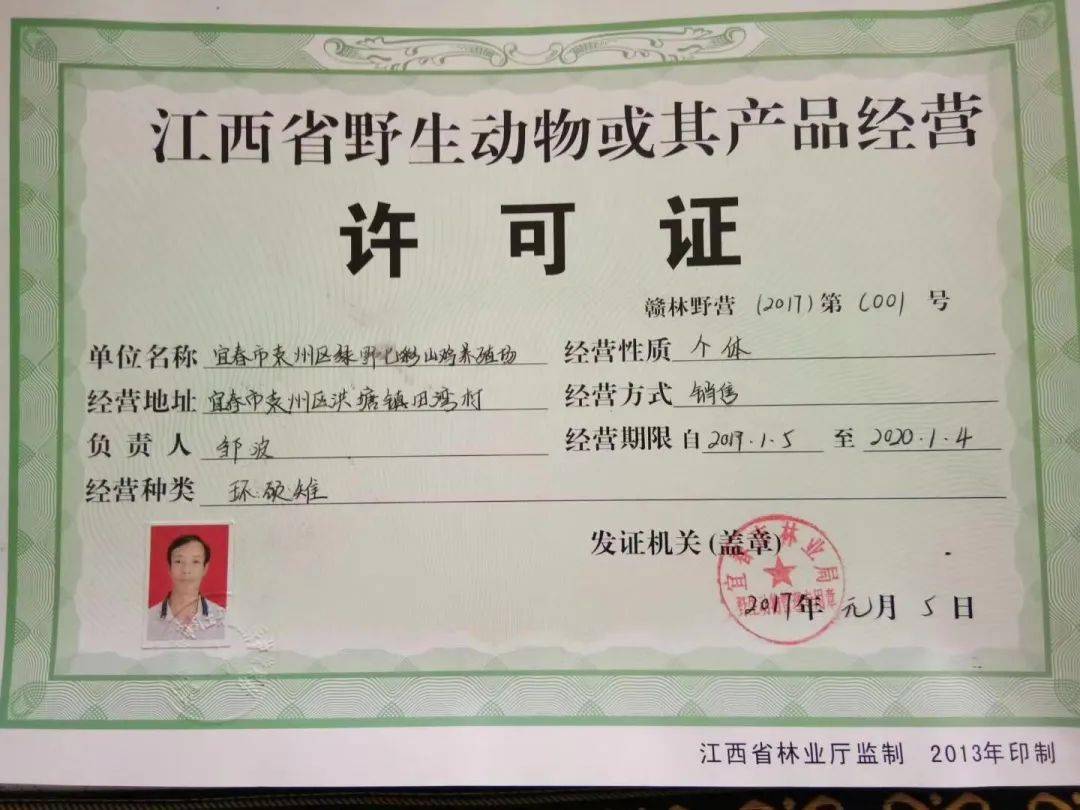 江西省野生动物或其产品经营
许可证
赣林野营 (2017) 第 C001 号
单位名称 宜春市袁州区绿野七彩山鸡养殖场
经营性质 个体
经营地址 宜春市袁州区洪塘镇田湾村
经营方式 销售
负责人 邹波
经营期限 自 2017.1.5 至 2020.1.4
经营种类 环颈雉
发证机关 (盖章)
宜春市林业局
2017年 元月 5日
江西省林业厅监制 2013年印制